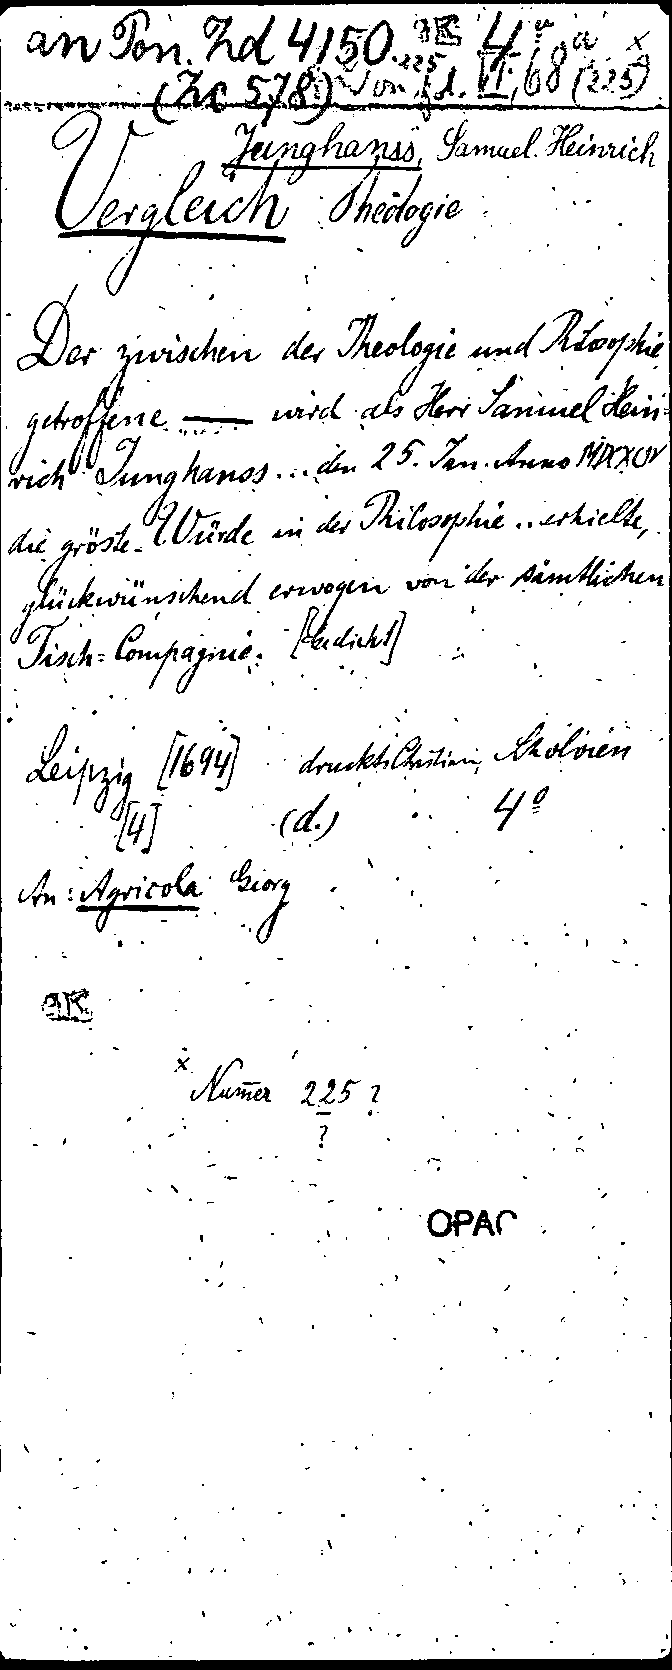 an Pon. Zd 4150. 4°
(Zc 578) Pon. Zd. II, 68 (225) x
Junghanss, Samuel Heinrich
Vergleich Theologie
Der zwischen der Theologie und Philosophie
getroffene —— wird als Herr Samuel Hein-
rich Junghanss... den 25. Jan. Anno
die gröste Würde in der Philosophie .. erhielte,
glückwünschend erwogen von der sämtlichen
Tisch=Compagnie. [Gedicht]
Leipzig [1694] druckts Christian
[4] (d.) 4°
An: Agricola Georg
aK
x
Numer 225 ?
?
OPAC